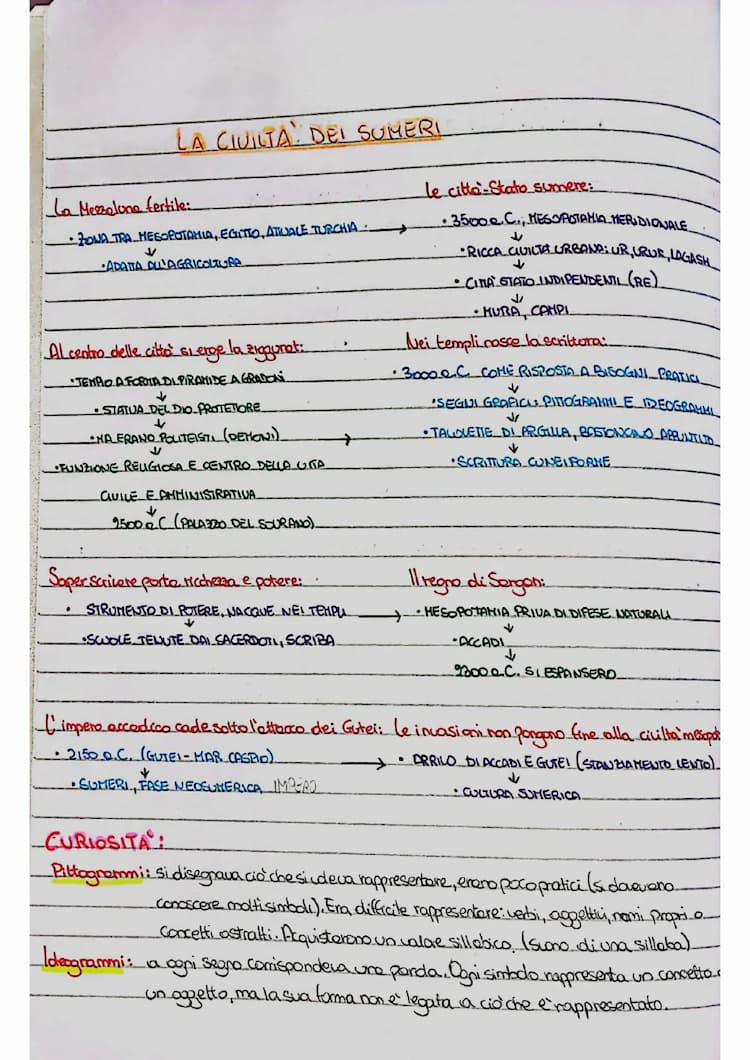 LA CIVILTA' DEI SUMERI
La Mezzaluna fertile:
• ZONA TRA MESOPOTAMIA, EGITTO, ATTUALE TURCHIA →
↓
• ADATTA ALL'AGRICOLTURA
Le città-Stato sumere:
• 3500 a.C., MESOPOTAMIA MERIDIONALE
↓
• RICCA CIVILTÀ URBANA: UR, URUK, LAGASH
↓
• CITTÀ STATO INDIPENDENTI (RE)
↓
• MURA, CAMPI
Al centro delle città si erge la ziggurat:
• TEMPIO A FORMA DI PIRAMIDE A GRADONI
↓
• STATUA DEL DIO PROTETTORE
↓
• MA ERANO POLITEISTI (DEMONI) →
↓
• FUNZIONE RELIGIOSA E CENTRO DELLA VITA
CIVILE E AMMINISTRATIVA
↓
2500 a.C (PALAZZO DEL SOVRANO)
Nei templi nasce la scrittura:
• 3000 a.C COME RISPOSTA A BISOGNI PRATICI
↓
• SEGNI GRAFICI: PITTOGRAMMI E IDEOGRAMMI
↓
• TAVOLETTE DI ARGILLA, BASTONCINO APPUNTITO
↓
• SCRITTURA CUNEIFORME
Saper scrivere porta ricchezza e potere:
• STRUMENTO DI POTERE, NACQUE NEI TEMPLI →
↓
• SCUOLE TENUTE DAI SACERDOTI, SCRIBA
Il regno di Sargon:
• MESOPOTAMIA PRIVA DI DIFESE NATURALI
↓
• ACCADI
↓
2300 a.C. SI ESPANSERO
L'impero accadico cade sotto l'attacco dei Gutei:
• 2150 a.C. (GUTEI-MAR CASPIO) →
↓
• SUMERI, FASE NEOSUMERICA IMPERO
Le invasioni non pongono fine alla civiltà mesopot
• ARRIVO DI ACCADI E GUTEI (STANZIAMENTO LENTO)
↓
• CULTURA SUMERICA
CURIOSITA':
Pittogrammi: si disegnava ciò che si voleva rappresentare, erano poco pratici (si dovevano
conoscere molti simboli). Era difficile rappresentare: verbi, aggettivi, nomi propri o
concetti astratti. Acquistarono un valore sillabico. (suono di una sillaba)
Ideogrammi: a ogni segno corrispondeva una parola. Ogni simbolo rappresenta un concetto o
un oggetto, ma la sua forma non e' legata a ciò che e' rappresentato.